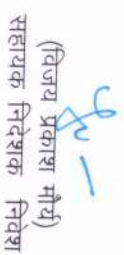 (विजय प्रकाश मौर्य)
सहायक निदेशक निवेश